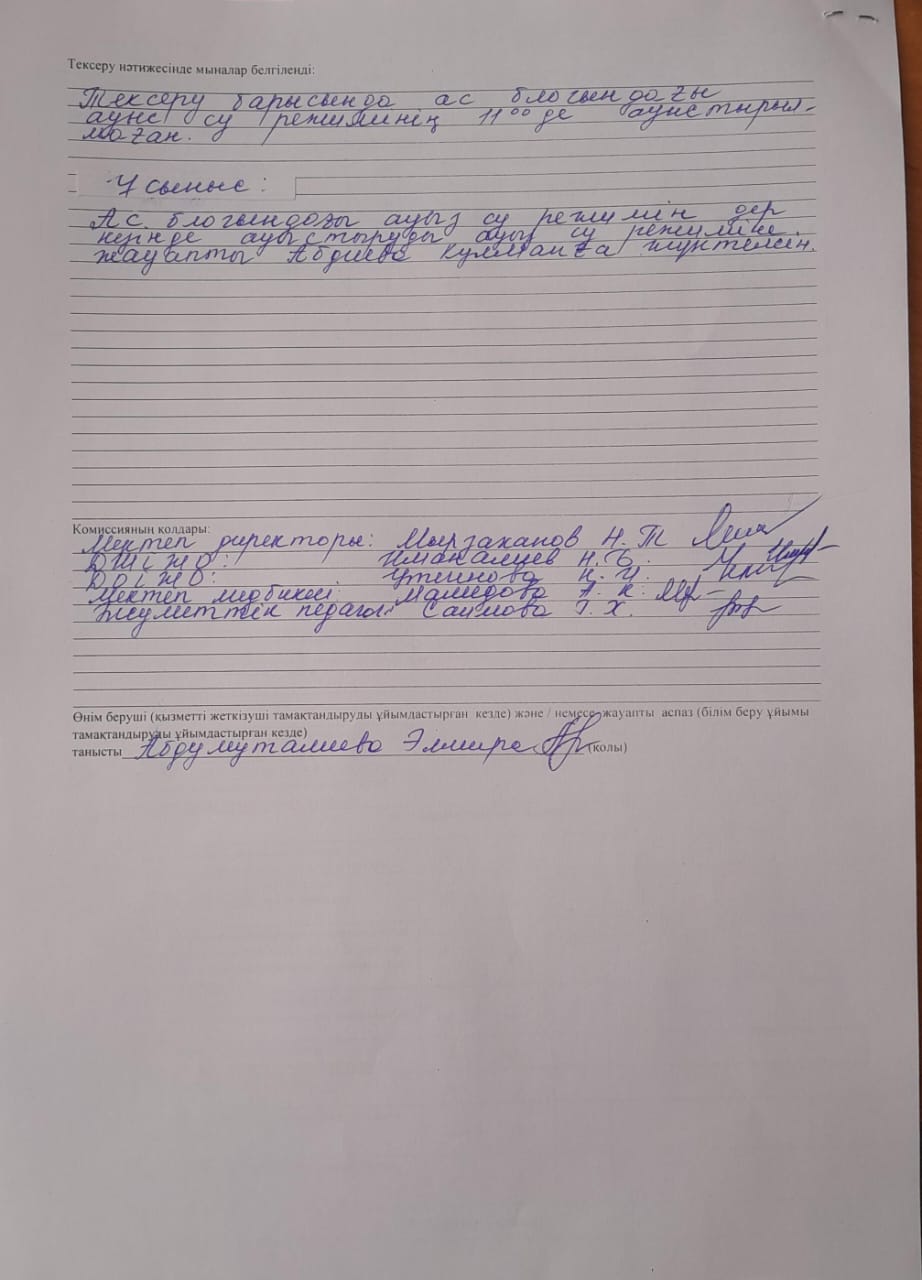 Тексеру нәтижесінде мыналар белгіленді:
Тексеру барысында ас блогындағы
ауыс су режимінің 11⁰⁰ де ауыстырыл-
маған.
Ұсыныс:
Ас. блогындағы ауыз су режимін дер
кезінде ауыстыруды ауыз су режиміне
жауапты Абдиева жүктелсін.
Комиссияның қолдары:
Мектеп директоры: Мырзаханов Н. Т
ДШІЖО: Иманалиев Н. Б.
ДОІЖО: Утеинова Н. И.
Мектеп медбикесі: Мамедова А. К.
Әлеуметтік педагог: Саимова Г. Х.
Өнім беруші (қызметті жеткізуші тамақтандыруды ұйымдастырған кезде) және / немесе жауапты аспаз (білім беру ұйымы
тамақтандыруды ұйымдастырған кезде)
танысты Абдумуталиева Элмира (қолы)